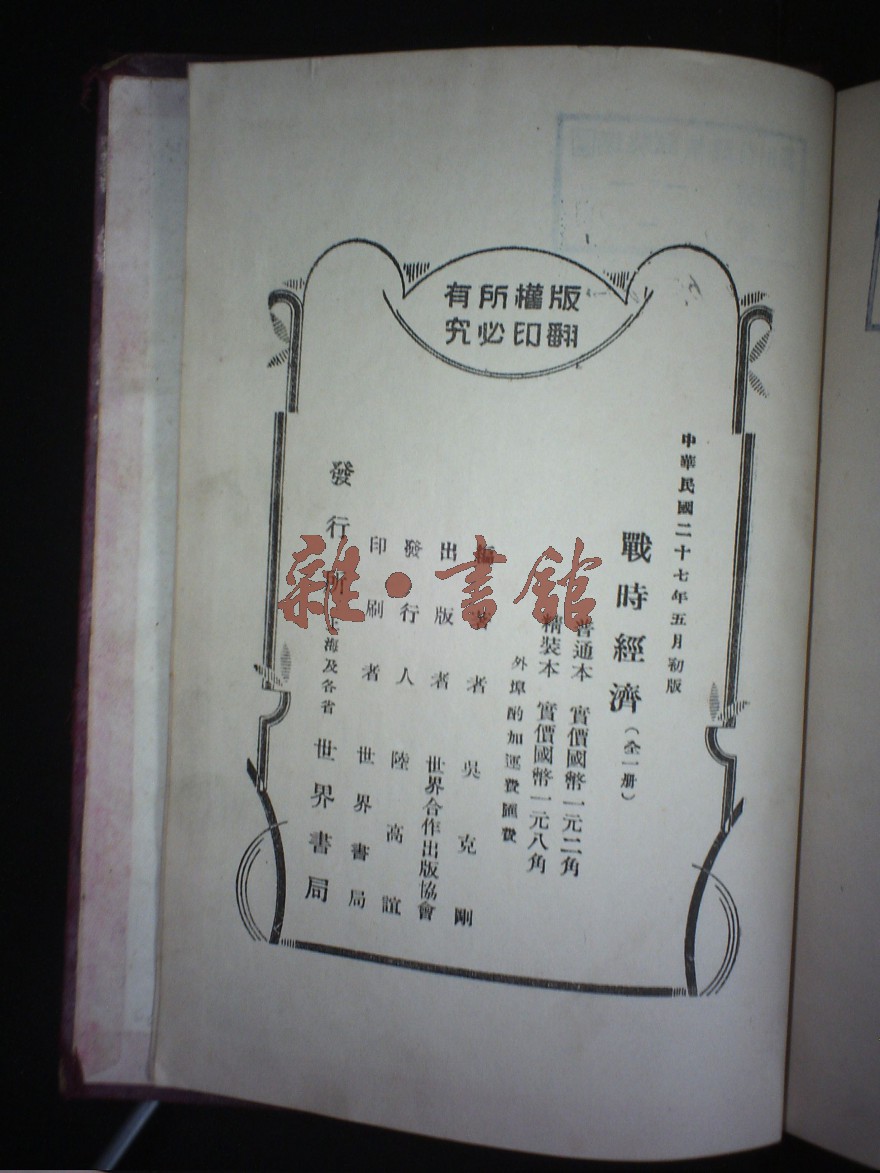 版權所有
翻印必究
中華民國二十七年五月初版
戰時經濟（全一册）
普通本 實價國幣一元二角
精裝本 實價國幣一元八角
外埠酌加運費匯費
編著者 吳克剛
出版者 世界合作出版協會
發行人 陸高誼
印刷者 世界書局
發行所 上海及各省 世界書局
雜·書館